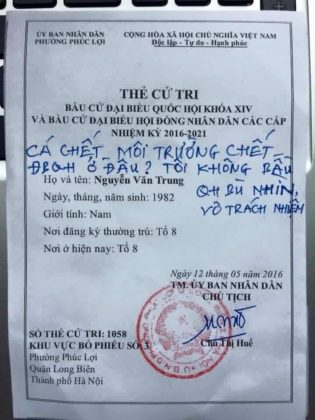 ỦY BAN NHÂN DÂN
PHƯỜNG PHÚC LỢI
CỘNG HÒA XÃ HỘI CHỦ NGHĨA VIỆT NAM
Độc lập - Tự do - Hạnh phúc
THẺ CỬ TRI
BẦU CỬ ĐẠI BIỂU QUỐC HỘI KHÓA XIV
VÀ BẦU CỬ ĐẠI BIỂU HỘI ĐỒNG NHÂN DÂN CÁC CẤP
NHIỆM KỲ 2016-2021
CÁ CHẾT, MÔI TRƯỜNG CHẾT
ĐBQH Ở ĐÂU? TÔI KHÔNG BẦU
QH BÙ NHÌN,
VÔ TRÁCH NHIỆM
Họ và tên: Nguyễn Văn Trung
Ngày, tháng, năm sinh: 1982
Giới tính: Nam
Nơi đăng ký thường trú: Tổ 8
Nơi ở hiện nay: Tổ 8
Ngày 12 tháng 05 năm 2016
TM. ỦY BAN NHÂN DÂN
CHỦ TỊCH
SỐ THẺ CỬ TRI: 1058
KHU VỰC BỎ PHIẾU SỐ: 3
Phường Phúc Lợi
Quận Long Biên
Thành phố Hà Nội
Chu Thị Huê